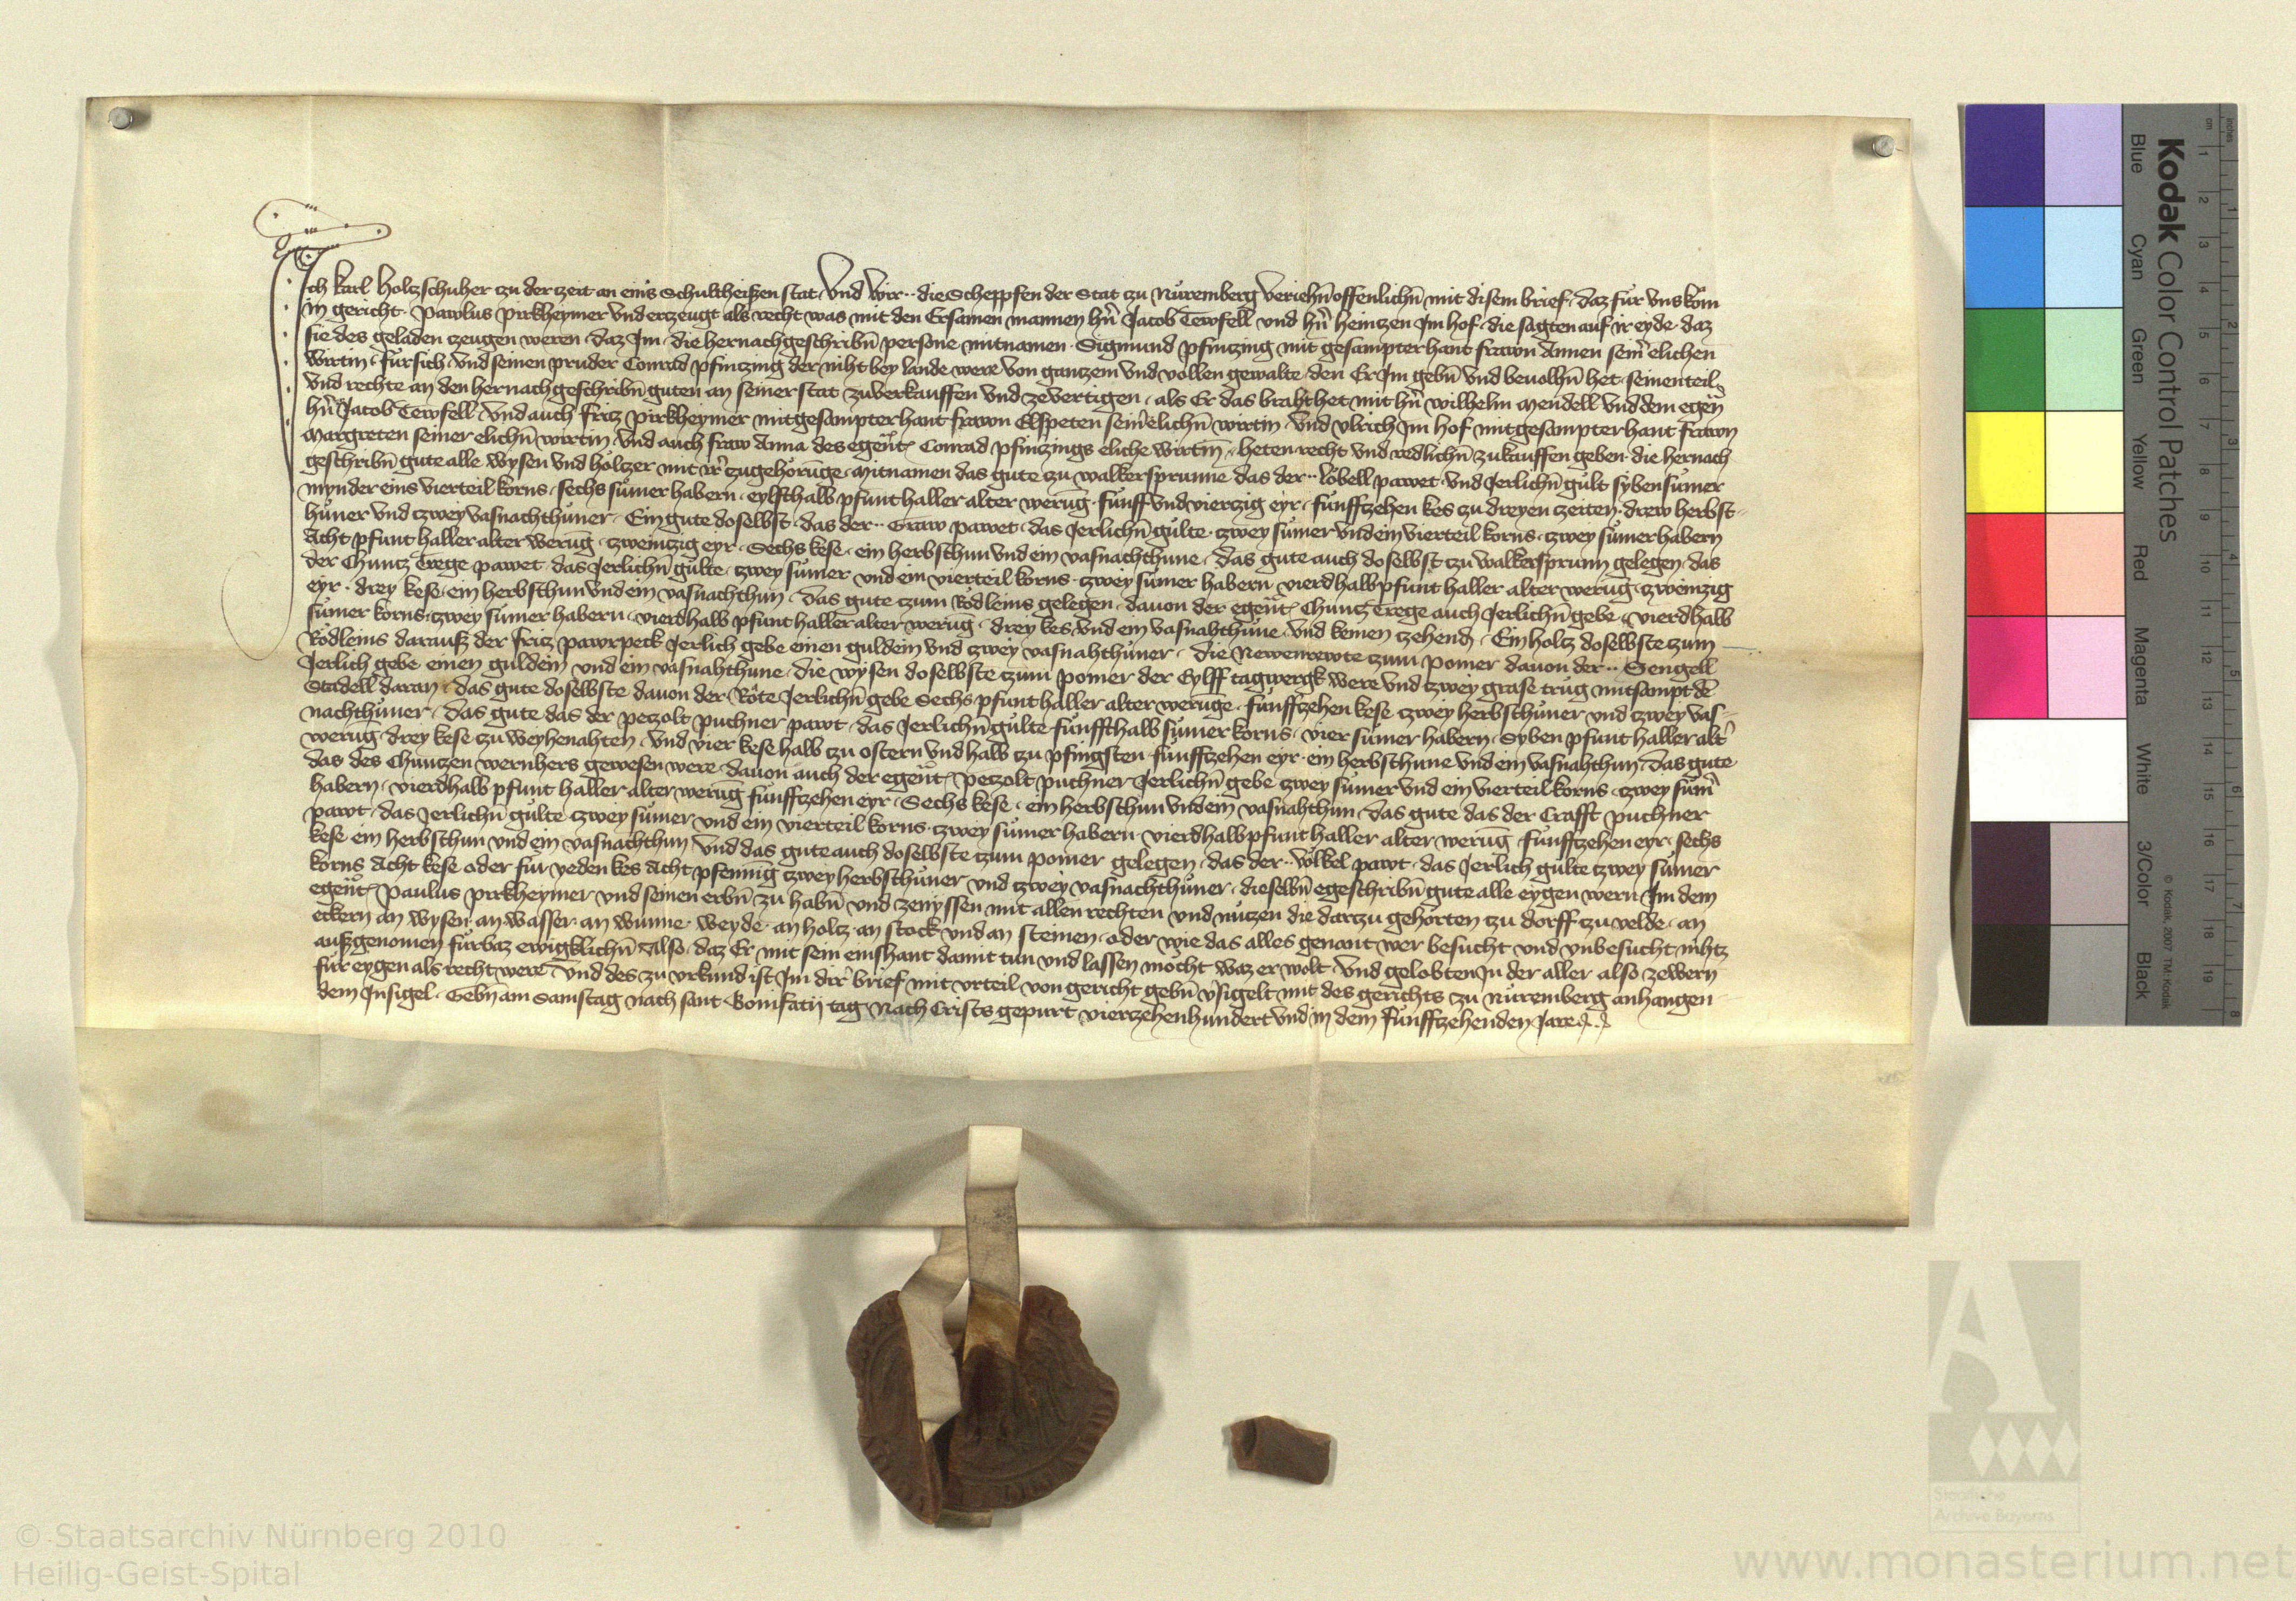 Ich karl Holtzschuher zu der zeit an eins Schultheißen stat Und Wir ·· die Scheppfen der Stat zu Nuͤremberg veriehn̄ offenlichn̄ mit disem brief daz fuͤr vns kom
in gericht · Pawlus Pirkheymer vnd ertzeugt als recht was mit den Ersamen mannen hn̄ Jacob Tewfell vnd hn̄ heintzen Im hof · die sagten auf ir eyde daz
sie des geladen czeugen weren · daz Im · die hernachgeschribn̄ persone mitnamen · Sigmund Pfintzing mit gesampter hant frawn Annen sein̄ elichen
Wirtin · fuͤr sich vnd seinen pruder Conrad Pfintzing der niht bey lande were von gantzem vnd vollen gewalte den Er Im gebn̄ vnd beuolhn̄ het · seinen teil
vnd rechte an den hernachgeschribn̄ guten an seiner stat zuuerkauffen vnd zeuertigen · als Er das braht het mit hn̄ wilhelm Mendell vnd dem egen̄
hn̄ Jacob Tewfell · Vnd auch fritz Pirkheymer mit gesampter hant frawn Elspeten sein̄ elichn̄ wirtin · vnd vlrich Im hof mit gesampter hant frawn
Margreten seiner elichn̄ wirtin · vnd auch fraw Anna des egen̄t Conrad Pfintzings eliche Wirtin · heten recht vnd redlichn̄ zukauffen geben · die hernach
geschribn̄ gute alle Wysen vnd hoͤltzer mit ir̄ zugehoͤrunge · mitnamen das gute zu walkersprunne das der ·· loͤbell pawet · vnd Jerlichn̄ guͤlt syben suͤmer
mynder eins vierteil korns · sechs suͤmer habern · eylfthalb pfunt haller alter weruḡ · fuͤnff vnd viertzig eyr · fuͤnfftzehen kes zu dreyen zeiten · drew herbst-
huͤner vnd zwey vasnachthuͤner · Ein gute doselbst · das der ·· Graw pawet · das Jerlichn̄ guͤlte · zwey suͤmer vnd ein vierteil korns · zwey suͤmer habern
Acht pfunt haller alter weruḡ · zweintzig eyr · Sechs kese · ein herbsthun vnd ein vasnachthune · das gute auch doselbst zu walkersprunn gelegen das
der Chuntz Trege pawet · das Jerlichn̄ guͤlte · zwey suͤmer vnd ein vierteil korns · zwey suͤmer habern vierdhalb pfunt haller alter weruḡ zweinzig
eyr · drey kese · ein herbsthun vnd ein vasnachthun · das gute zum Roͤdleins gelegen · dauon der egen̄t Chuntz Trege auch Jerlichn̄ gebe · vierdhalb
suͤmer korns · zwey suͤmer habern · vierdhalb pfunt haller alter weruḡ · drey kes vnd ein vasnahthuͤne vnd keinen zehend · Ein holtz doselbste zum
Roͤdleins darauß der fritz pawrpeck Jerlich gebe einen guldein vnd zwey vasnahthuͤner · die Newenrewte zum pomer dauon der ·· Sengell
Jerlich gebe einen guldein vnd ein vasnahthune · die wysen doselbste zum pomer der Eylff tagwergk were vnd zwey grase trug mitsampt dē
Stadell daran · das gute doselbste dauon der Roͤte Jerlichn̄ gebe Sechs pfunt haller alter werunge · fuͤnffzehen kese zwey herbsthuͤner vnd zwey vas-
nachthuͤner · das gute das der petzolt puchner pawt · das Jerlichn̄ guͤlte fuͤnffthalb suͤmer korns · vier suͤmer habern · Syben pfunt haller alt̄
weruḡ drey kese zu weyhenahten · vnd vier kese halb zu ostern vnd halb zu pfingsten · funfftzehen eyr · ein herbsthune vnd ein vasnahthun · das gute
das des Chuntzen wernhers gewesen were · dauon auch der egen̄t petzolt puchner Jerlichn̄ gebe zwey suͤmer vnd ein vierteil korns · zwey suͤm̄
habern · vierdhalb pfunt haller alter weruḡ fuͤnfftzehen eyr · Sechs kese · ein herbsthun vnd ein vasnahthun · das gute das der Crafft puchner
pawt · das Jerlichn̄ guͤlte zwey suͤmer vnd ein vierteil korns · zwey suͤmer habern vierdhalb pfunt haller alter weruḡ · fuͤnfftzehen eyr · sechs
kese ein herbsthun vnd ein vasnachthun vnd das gute auch doselbste zum pomer gelegen · das der ·· voͤlkel pawt · das Jerlich guͤlte zwey suͤmer
korns Acht kese oder fur yeden kes Acht pfenninḡ zwey herbsthuͤner vnd zwey vasnachthuͤner · dieselbn̄ egeschribn̄ gute alle eygen wern Im dem
egen̄t Paulus Pirkheymer vnd seinen erbn̄ zu habn̄ vnd zenyssen mit allen rechten vnd nuͤtzen die dartzu gehoͤrten zu dorff zu velde · an
eckern an wysen an wasser · an wunne · weyde · an holtz an stock vnd an steinen · oder wie das alles genant wer besucht vnd vnbesucht nihtz
außgenomen fuͤrbaz ewigklichn̄ Also · daz Er mit sein einshant damit tun vnd lassen moͤcht waz er wolt · Vnd gelobten In der aller also zewern
fuͤr eygen als recht were Vnd des zu vrkund ist Im dir̄ brief mit vrteil von gericht gebn̄ v̄sigelt mit des gerichts zu Nuͤremberg anhangen-
dem Insigel · Gebn̄ am Samstag nach sant Bonifacij tag Nach Crists gepurt viertzehenhundert vnd in dem fuͤnfftzehenden Jare
Kodak Color Control Patches
Blue Cyan Green Yellow Red Magenta White 3/Color Black
© Kodak, 2007 TM: Kodak
cm 1 2 3 4 5 6 7 8 9 10 11 12 13 14 15 16 17 18 19
inches 1 2 3 4 5 6 7 8
Staatliche
Archive Bayerns
© Staatsarchiv Nürnberg 2010
Heilig-Geist-Spital
www.monasterium.net